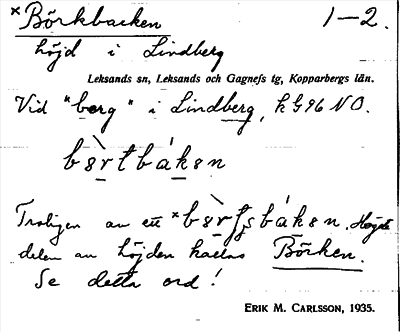 ×Börkbacken 1–2.
höjd i Lindberg
Leksands sn, Leksands och Gagnefs tg, Kopparbergs län.
Vid "berg" i Lindberg, k G96 NO.
bərtbakən
Troligen av ett ×bərtsbakən. Högsta
delen av höjden kallas Börken.
Se detta ord!
ERIK M. CARLSSON, 1935.